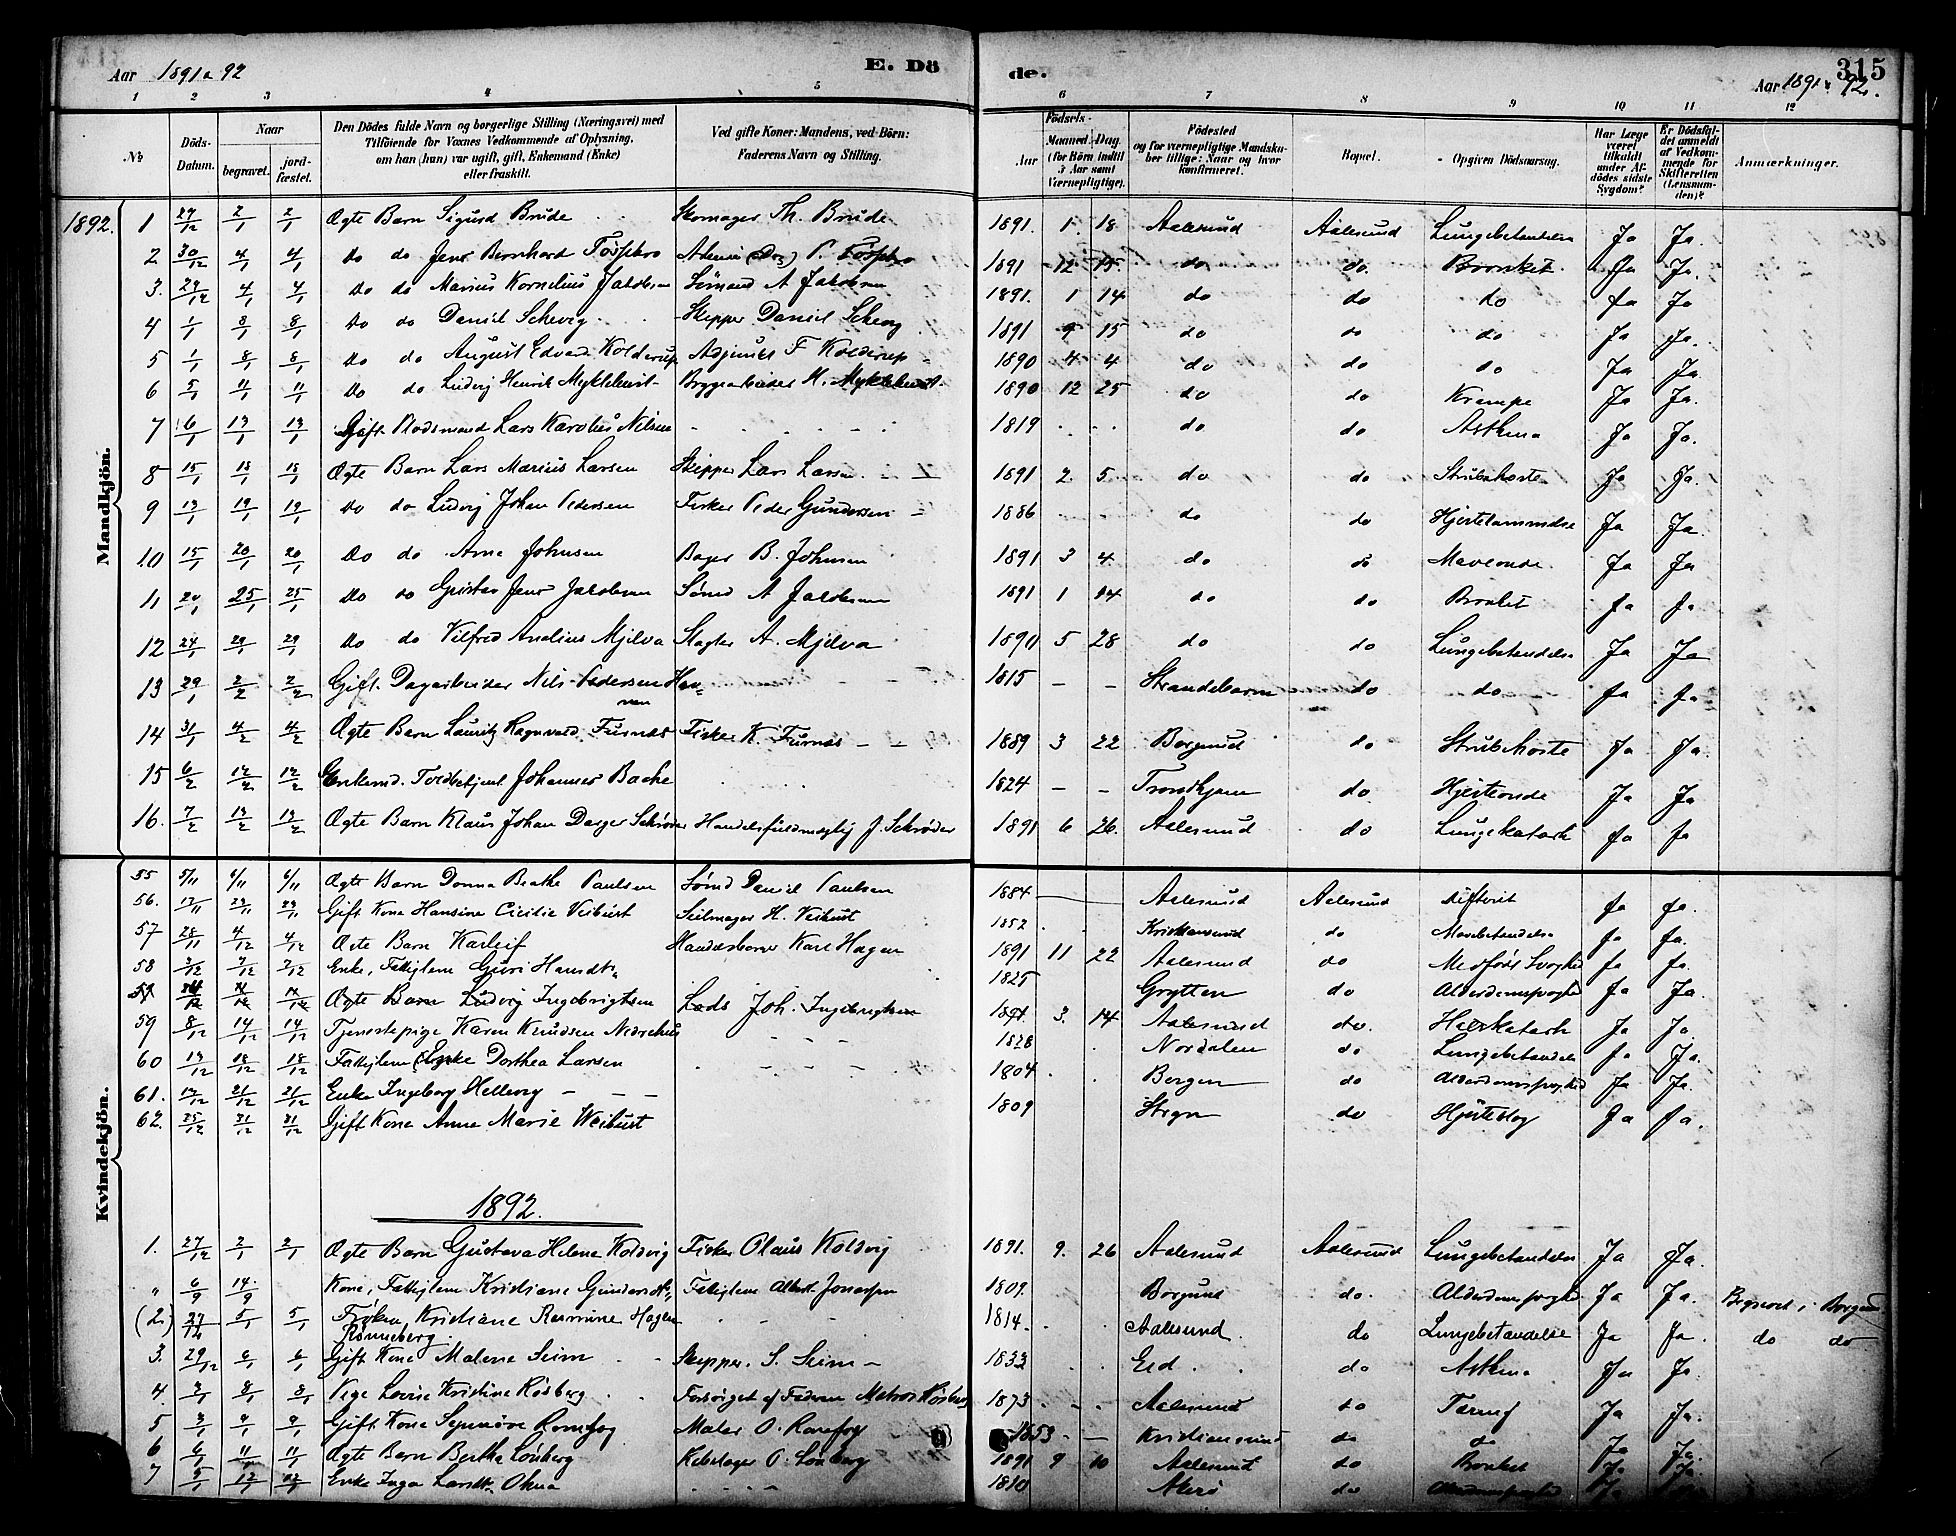 Aar 1891 a 92
E. Dö
de.
315
Aar 1891 a 92.
1 2 3 4 5 6 7 8 9 10 11 12
No
Döds-Datum.
Naar
begravet.
jordfæstet.
Den Dödes fulde Navn og borgerlige Stilling (Næringsvei) med
Tilföiende for Voxnes Vedkommende af Oplysning,
om han (hun) var ugift, gift, Enkemand (Enke)
eller fraskilt.
Ved gifte Koner: Mandens, ved Börn:
Faderens Navn og Stilling.
Födsels-
Aar
Maaned. Dag.
(for Börn indtil
3 Aar samt
Værnepligtige).
Födested
og for værnepligtige Mandska-
ber tillige: Naar og hvor
konfirmeret.
Bopæl.
Opgiven Dödsaarsag.
Har Læge
været
tilkaldt
under Af-
dödes sidste
Sygdom?
Er Dödsfal-
det anmeldt
af Vedkom-
mende for
Skifteretten
(Lensman-
den)?
Anmærkninger.
Mandkjön.
1892. 1 27/12 2/1 2/1 Ægte Barn Sigurd Brude Skomager Th. Brude 1891. 1. 18 Aalesund Aalesund Lungebetændelse Ja Ja.
2 30/12 4/1 4/1 Do do Jens Bernhard 1891 12 15 do do Bronket. Ja Ja.
3. 29/12 4/1 4/1 Do do Marius Kornelius Jakobsen Sömand A Jakobsen 1891. 1 14 do do do Ja Ja
4 1/1 8/1 8/1 Do do Daniel Schevig Skipper Daniel Schevig 1891 9 15 do do do Ja Ja.
5 1/1 8/1 8/1 Do do August Edvard Kolderup Adjunkt F Kolderup 1890 4 4 do do do Ja Ja
6 5/1 11/1 11/1 Do do Ludvig Henrik Myklebust Bryggearbeider H. Myklebust 1890 12 25 do do Krampe Ja Ja.
7 6/1 13/1 13/1 Gift Lars Karolus Nilsen 1819 do do Asthma Ja Ja.
8 15/1 18/1 18/1 Ægte Barn Lars Marius Larsen Skipper Lars Larsen 1891 2. 5 do do Strubehoste Ja Ja.
9 13/1 19/1 19/1 Do do Ludvig Johan Pedersen Fisker Peder Gundersen 1886 do do Hjertelammelse Ja Ja.
10 15/1 20/1 20/1 Do do Arne Johnsen Bager B. Johnsen 1891 3 4 do do Maveonde. Ja Ja
11 20/1 25/1 25/1 Do do Gustav Jens Jakobsen Sömd A Jakobsen 1891 1 14 do do Bronket Ja Ja
12 24/1 29/1 29/1 Do do Vilfred Anelius Mjelva Slagter A. Mjelva 1891 5 28 do do Lungebetændelse Ja Ja
13 29/1 2/2 2/2 Gift. Dagarbeider Nils Pedersen 1815 - - Strandebarm do do Ja Ja
14 31/1 4/2 4/2 Ægte Barn Lauritz Ragnvald Furnes Fisker K. Furnes 1889 3 22 Borgund do Strubehoste Ja Ja.
15 6/2 12/2 12/2 Enkemd. Toldbetjent Johannes Bache 1824 - - Trondhjem do Hjerteonde Ja Ja
16. 7/2 13/2 13/2 Ægte Barn Klaus Johan Darger Schröder Handelsfuldmægtig J. Schröder 1891 6 26. Aalesund do Lungekatarh Ja Ja
Kvindekjön.
55 5/11 6/11 6/11 Ægte Barn Donna Beathe Paulsen Sömd Daniel Paulsen 1884 Aalesund Aalesund Difterit Ja Ja.
56. 17/11 23/11 23/11 Gift Kone Hansine Cicilie Veibust Seilmager H. Veibust 1852 Kristiansund do Mavebetændelse Ja Ja.
57 28/11 4/12 4/12 Ægte Barn Karleif Karl Hagen 1891 11 22 Aalesund do Medfödt Svaghed Ja Ja.
58 2/12 7/12 7/12 Enke, Fattiglem Guri Hansdt. 1825 Grytten do Alderdomssvaghed Ja Ja.
Ægte Barn Ludvig Ingebrigtsen Lods Joh. Ingebrigtsen 1891. 3. 14 Aalesund do. Ja Ja
59 8/12 14/12 14/12 Tjenestepige Karen Knudsen 1828 Nordalen do Lungebetændelse Ja Ja.
60 13/12 18/12 18/12 Fattiglem Enke Dorthea Larsen 1804 Bergen do Alderdomssvaghed Ja Ja.
61. 17/12 21/12 21/12 Enke Ingeborg Hellevig 1809 Stryn do Hjerteslag Ja Ja.
62. 25/12 31/12 31/12 Gift Kone Anne Marie Veibust
1892.
1. 27/12 2/1 2/1 Ægte Barn Gustava Helene Kolsvig Fisker Olaus Kolsvig 1891. 9. 26 Aalesund Aalesund Lungebetændelse Ja Ja.
" 6/9 14/9 Kone, Fattiglem Kristiane Gundersdt. Fattiglem Albert Jonassen 1809. Borgund do. Alderdomssvaghed Ja Ja. Begravet i Borgund
(2.) 27/12 5/1 5/1 Fröken, Kristiane Rasmine Hagen Rönneberg. 1814. Aalesund. do Lungebetændelse Ja Ja. do do
3. 29/12 6/1 6/1 Gift Kone Malene Seim Skipper. S. Seim 1833 Eid do Asthma Ja Ja.
4. 3/1 8/1 8/1 Pige Lovise Kristine Røsberg Forsörget af Faderen Matros Røsberg 1873 Aalesund do Ja Ja.
5 3/1 9/1 9/1 Gift Kone Synnöve Maler O. 1853 - - Kristiansund do do Ja Ja.
6 6/1 11/1 11/1 Ægte Barn Bertha Lönberg O. Lönberg 1891 9 10 Aalesund do Bronket Ja Ja
7 5/1 12/1 12/1 Enke Inga Larsdt. 1810 do Alderdomssvaghed Ja Ja